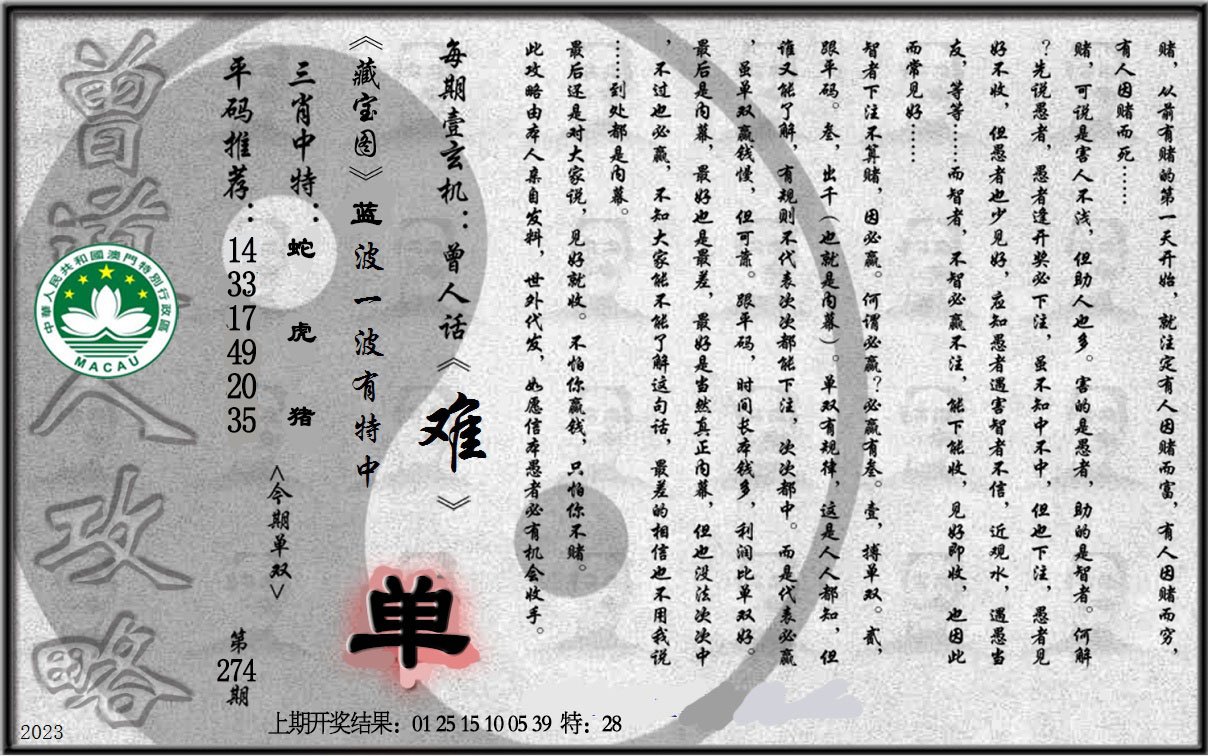 赌，从前有赌的第一天开始，就注定有人因赌而富，有人因赌而穷，
有人因赌而死……
赌，可说是害人不浅，但助人也多。害的是愚者，助的是智者。何解
？先说愚者，愚者逢开奖必下注，虽不知中不中，但也下注，愚者见
好不收，但愚者也少见好，应知愚者遇害智者不信，近观水，遇愚当
友，等等……而智者，不智必赢不注，能下能收，见好即收，也因此
而常见好……
智者下注不算赌，因必赢。何谓必赢？必赢有叁。壹，搏单双。贰，
跟平码。叁，出千（也就是内幕）。单双有规律，这是人人都知，但
谁又能了解，有规则不代表次次都能下注，次次都中。而是代表必赢
，虽单双赢钱慢，但可靠。跟平码，时间长本钱多，利润比单双好。
最后是内幕，最好也是最差，最好是当然真正内幕，但也没法次次中
，不过也必赢，不知大家能不能了解这句话，最差的相信也不用我说
……到处都是内幕。
最后还是对大家说，见好就收。不怕你赢钱，只怕你不赌。
此攻略由本人亲自发料，世外代发，如愿信本愚者必有机会收手。
每期壹玄机：曾人话《难》
《藏宝图》蓝波一波有特中
单
三肖中特：蛇 虎 猪
<今期单双>
平码推荐：14 33 17 49 20 35
第274期
曾道人攻略
中華人民共和國澳門特別行政區
MACAU
上期开奖结果：01 25 15 10 05 39 特：28
2023